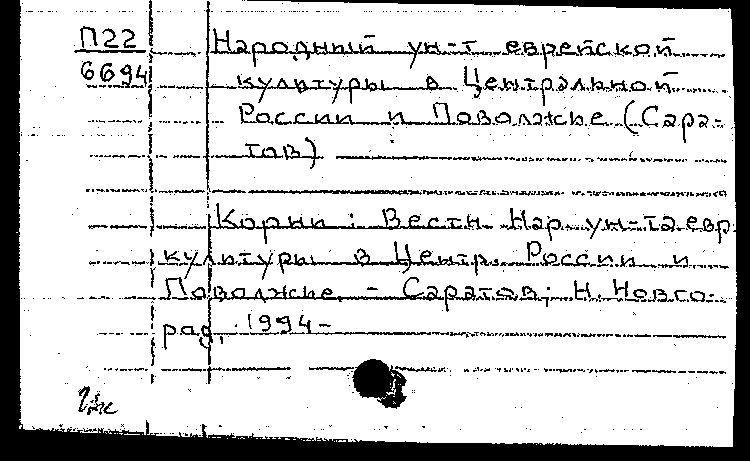 П22
6694
Народный ун-т еврейской
культуры в Центральной
России и Поволжье (Сара-
тов)
Корни : Вестн. Нар. ун-та евр.
культуры в Центр. России и
Поволжье. - Саратов; Н. Новго-
род, 1994-